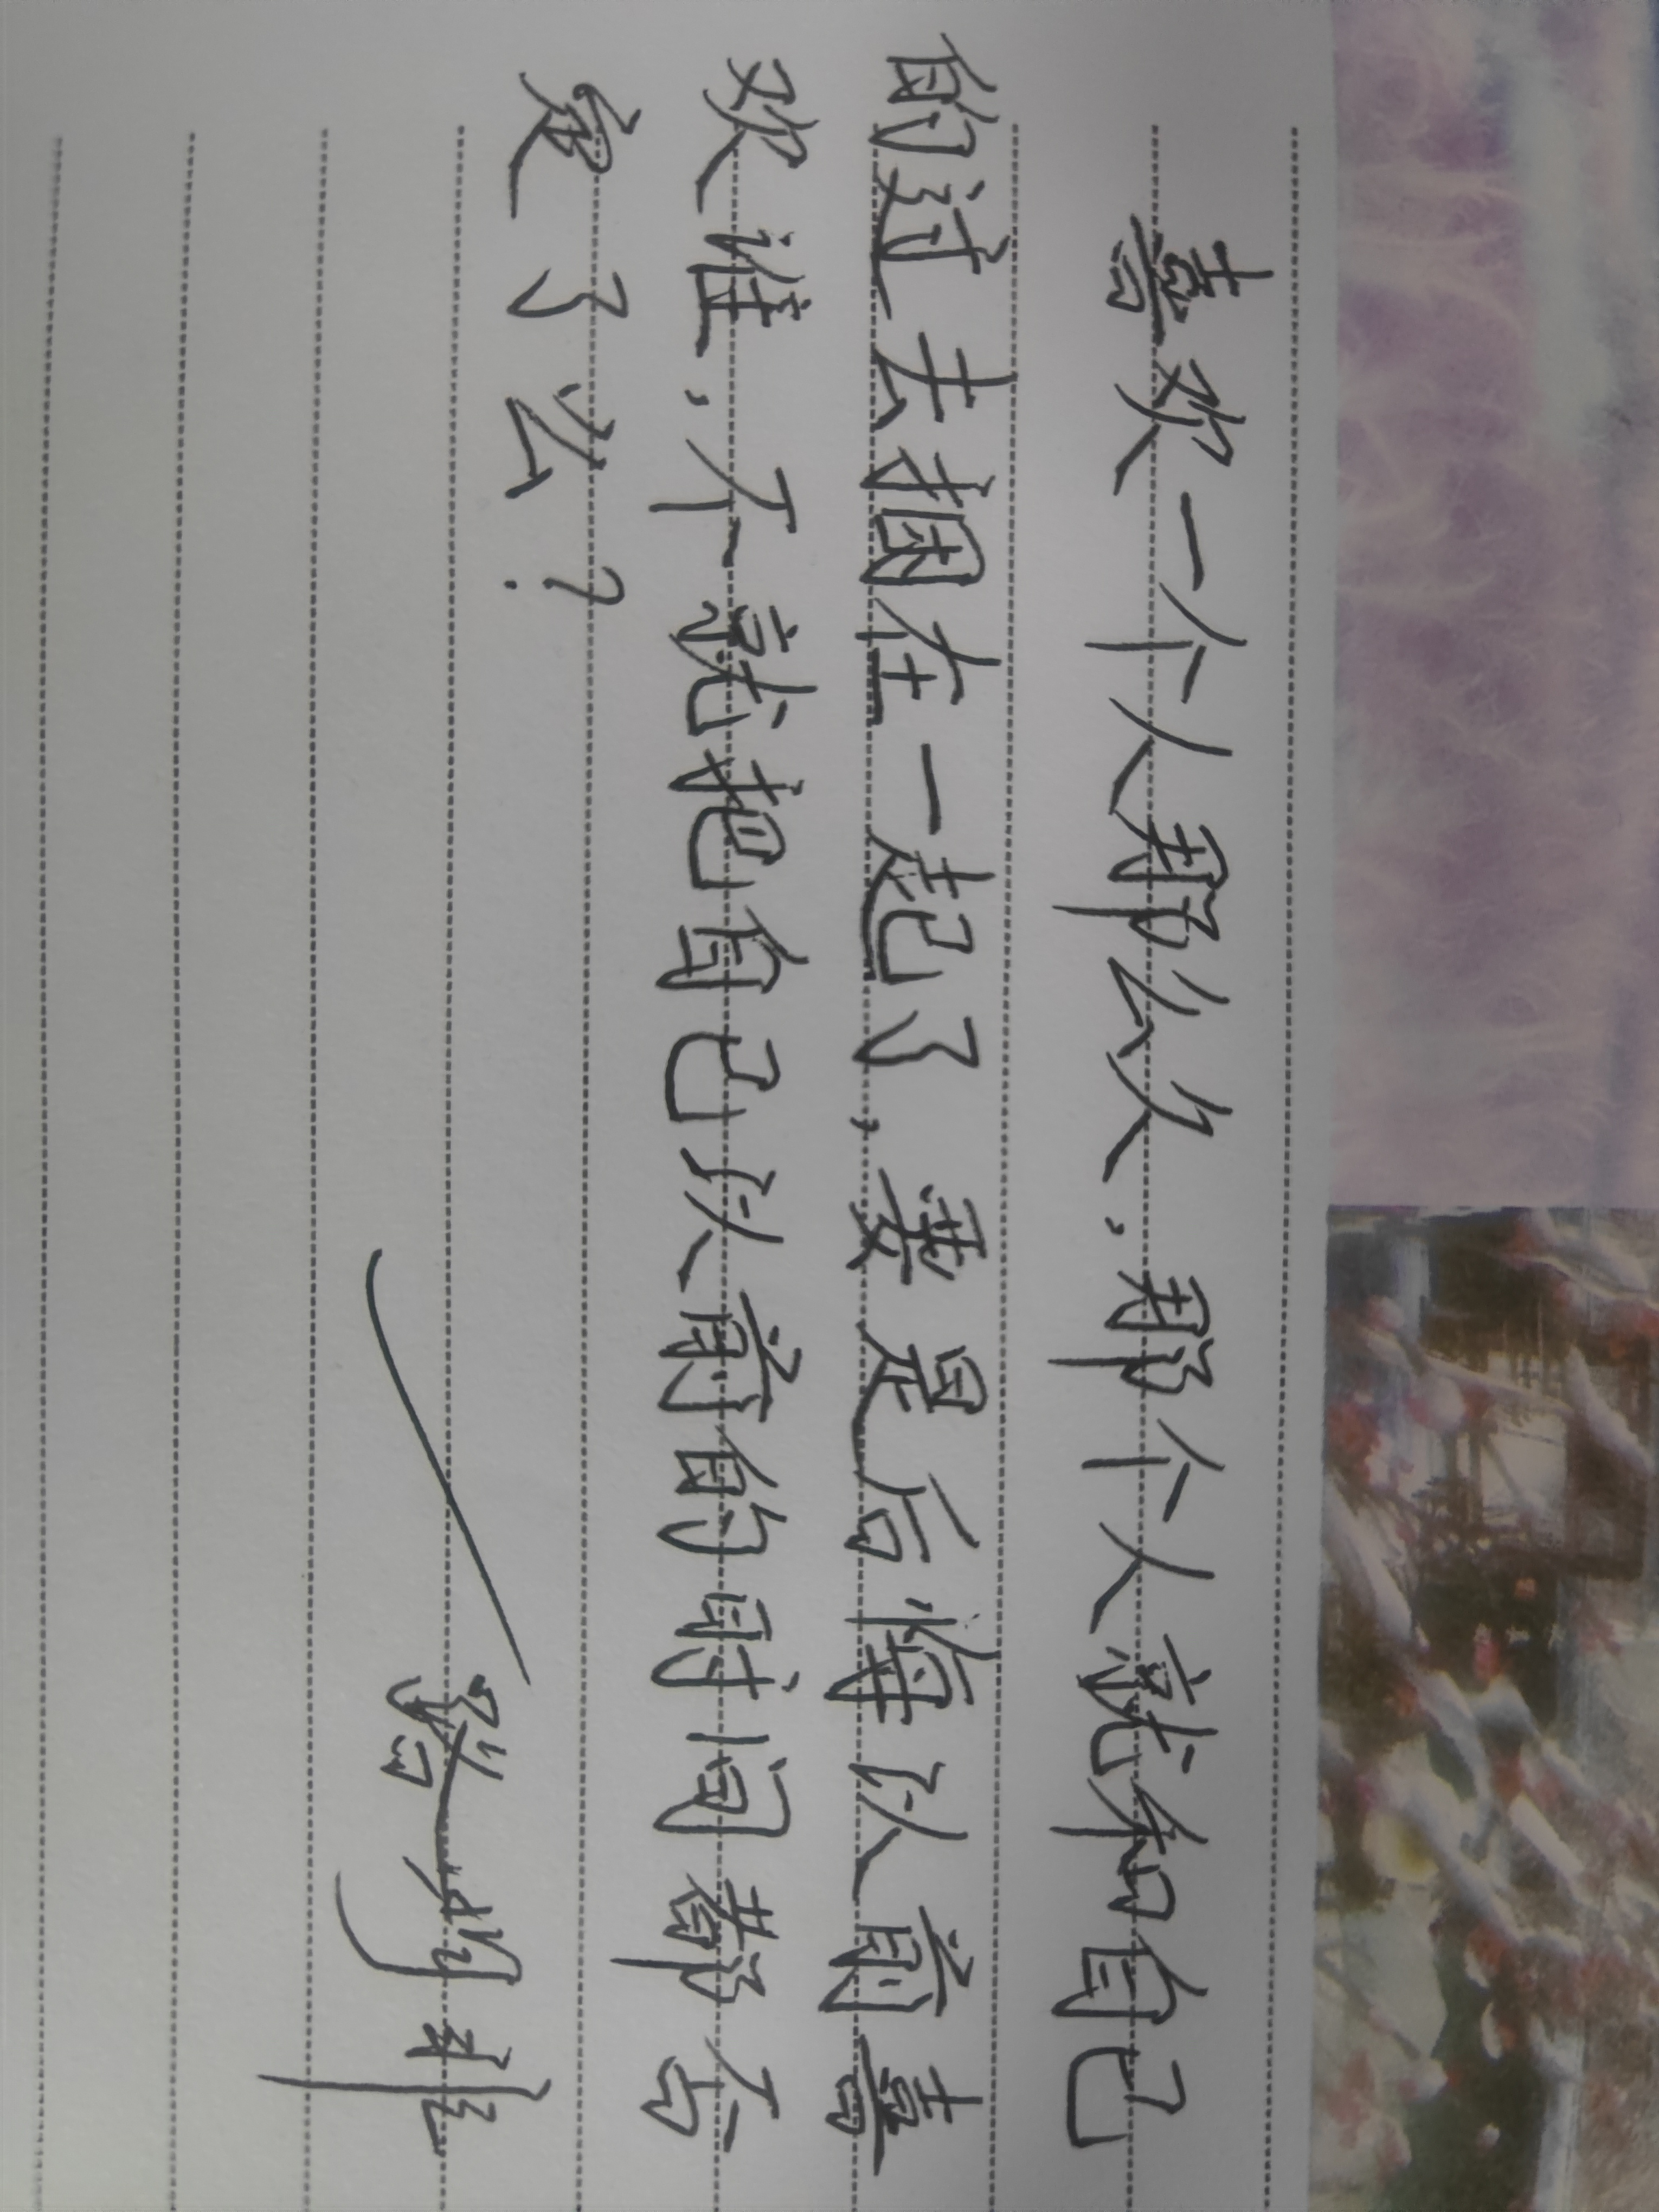 喜欢一个人那么久,那个人就和自己
的过去捆在一起了,要是后悔以前喜
欢谁,不就把自己以前的时间都否
定了么?
—路明非